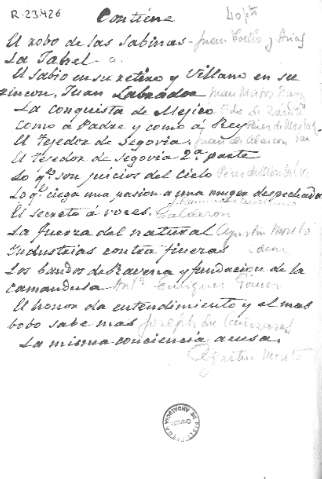 R-23426
Contiene
El robo de las Sabinas - Juan Coello y Arias
La Jahel - a.
El Sabio en su retiro y Villano en su
rincon, Juan Labrador Juan Matos
La conquista de Mejico
Como á Padre y como á Rey
El Tejedor de Segovia.
El Tejedor de Segovia 2ª parte
Lo qe son juicios del Cielo
Lo qe ciega una pasion a una muger despechada
El secreto á voces. Calderon
La fuerza del natural Agustin Moreto
Industrias contra finezas idem
Los bandos de Ravena y fundacion de la
camandula Antº Enriquez Gomez
El honor da entendimiento y el mas
bobo sabe mas Joseph de Cañizares
La misma conciencia acusa.
Agustin Moreto